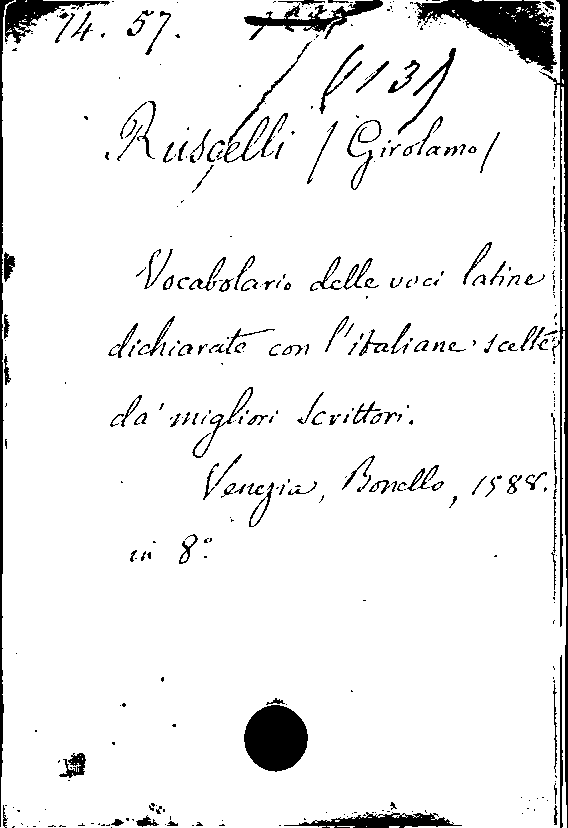 74. 57.
(13)
Ruscelli / Girolamo /
Vocabolario delle voci latine
dichiarate con l'italiane scelte
da' migliori scrittori.
Venezia, Bonello, 1588.
in 8º